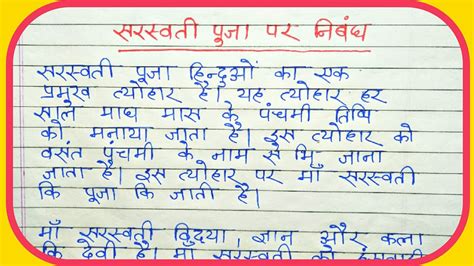 सरस्वती पूजा पर निबंध
सरस्वती पूजा हिन्दुओं का एक
प्रमुख त्योहार है। यह त्योहार हर
साल माघ मास के पंचमी तिथि
को मनाया जाता है। इस त्योहार को
वसंत पंचमी के नाम से भि जाना
जाता है। इस त्योहार पर माँ सरस्वती
कि पूजा कि जाती है।
माँ सरस्वती विद्या, ज्ञान और कला
कि देवी है। माँ सरस्वती को